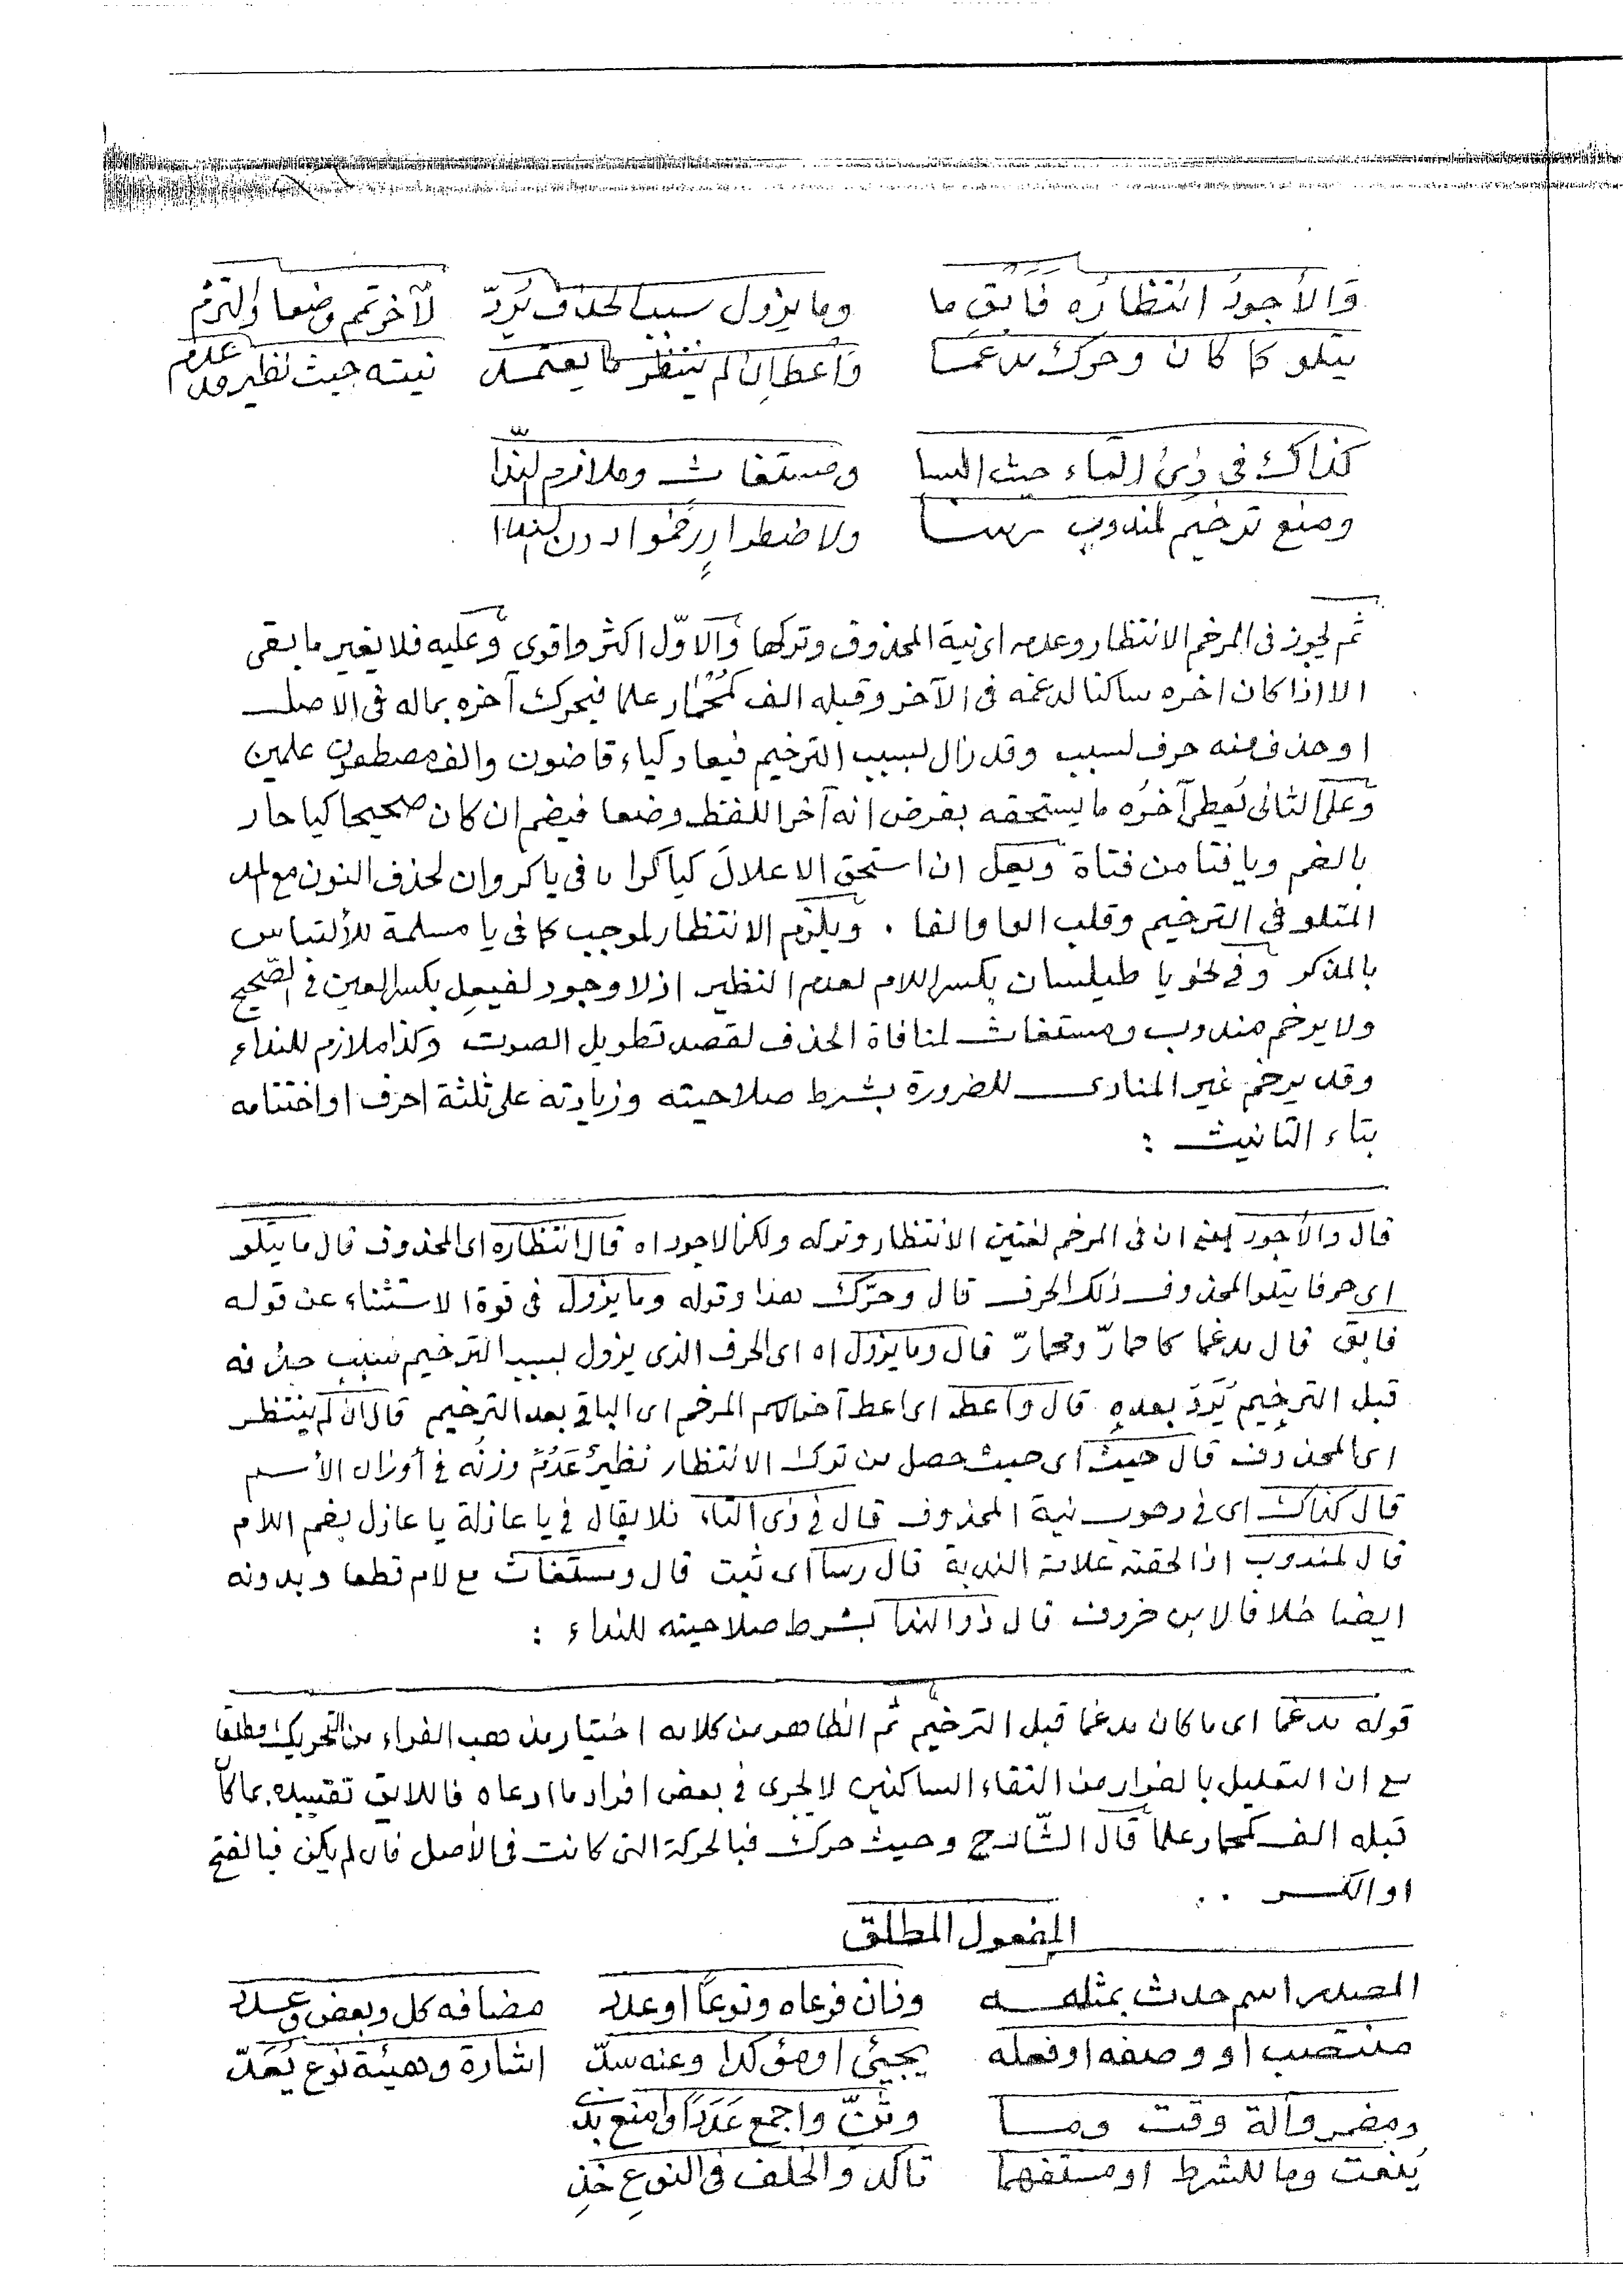 والأجودُ انتظارُه فَأبقِ ما    وما يزول سببَ الحذف يُرَدّ    لآخر تم وضعا والتزم
يتلو كما كان وحرك مدغما    وأعط إن لم ينتظر ما يعتمد    نيته حيث نظير عدم
كذاك في ذي التاء حيث التبسا    ومستغاث وملازم الندا
ومنع ترخيم لمندوب رسا    ولاضطرارٍ رخموا دون الندا
ثم يجوز في المرخم الانتظار وعدمه اى نية المحذوف وتركها والاوّل اكثر واقوى وعليه فلا يغير ما بقى
الا اذا كان اخره ساكنا لدغمه في الآخر وقبله الف كمُحْمَارّ علما فيحرك آخره بماله في الاصل
او حذف منه حرف لسبب وقد زال بسبب الترخيم فيعاد كياء قاضون والف مصطفون علمين
وعلى الثاني يُعطى آخرُه ما يستحقه بفرض انه آخر اللفظ وضعا فيضم ان كان صحيحا كيا حار
بالضم ويا فتا من فتاة ويعل ان استحق الاعلالَ كيا كرا في يا كروان بحذف النون مع المد
المتلو في الترخيم وقلب الواو الفا . ويلزم الانتظار لموجب كما في يا مسلمة للألتباس
بالمذكر وفي نحو يا طيلسان بكسر اللام لعدم النظير اذ لا وجود لفيعِل بكسر العين في الصحيح
ولا يرخم مندوب ومستغاث لمنافاة الحذف لقصد تطويل الصوت وكذا ملازم للنداء
وقد يرخم غير المنادى للضرورة بشرط صلاحيته وزيادته على ثلثة احرف او اختتامه
بتاء التانيث :
قال والأجود يعنى ان في المرخم لغتين الانتظار وتركه ولكن الاجود اه قال انتظاره اى المحذوف قال ما يتلو
اى حرفا يتلو المحذوف ذلك الحرف قال وحرّك هذا وقوله وما يزول في قوة الاستثناء عن قوله
فابق قال مدغما كاحمارّ ومحمارّ قال وما يزول اه اى الحرف الذى يزول بسبب الترخيم سبب حذفه
قبل الترخيم يُرَدّ بعده قال واعط اى اعط آخر الاسم المرخم اى الباقي بعد الترخيم قال ان لم ينتظر
اى المحذوف قال حيث اى حيث حصل من ترك الانتظار نظيرٌ عَدُمَ وزنُه في أوزان الأسم
قال كذاك اى في وجوب نية المحذوف قال في ذى التاء فلا يقال في يا عاذلة يا عاذل بضم اللام
قال لمندوب اذا لحقته علامة الندبة قال رسا اى ثبت قال ومستغاث مع لام قطعا وبدونه
ايضا خلافا لابن خروف قال ذو الندا بشرط صلاحيته للنداء :
قوله مدغما اى ما كان مدغما قبل الترخيم ثم الظاهر من كلامه اختيار مذهب الفراء من التحريك مطلقا
مع ان التعليل بالفرار من التقاء الساكنين لا يجرى في بعض افراد ما ادعاه فاللايق تقييده بما كان
قبله الف كمحمار علما قال الشّارح وحيث حرك فبالحركة التى كانت في الأصل فان لم يكن فبالفتح
او الكسر ..
المفعول المطلق
المصدر اسم حدث بمثله    ونان فرعاه ونوعًا او عدد    مضافه كل وبعض وعدد
منتصب او وصفه او فعله    يجيئ او مؤكدا وعنه سدّ    اشارة وهيئة نوع يُعَدّ
ومضمر وآلة وقت وما    وثنّ واجمع عَدَدًا وامنع بذى
يُنعت وما للشرط او مستفهما    تاكد والخلف في النوعِ خذِ